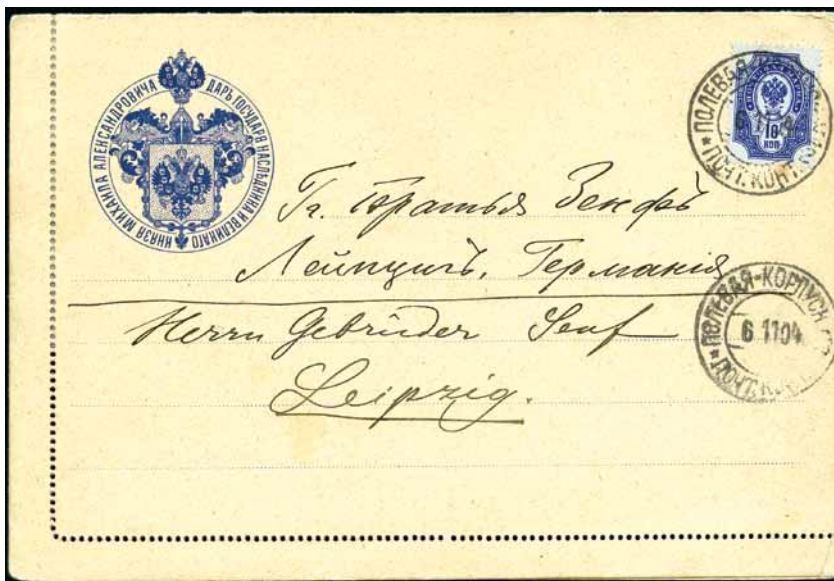 ДАРЪ ГОСУДАРЯ НАСЛѢДНИКА И ВЕЛИКАГО КНЯЗЯ МИХАИЛА АЛЕКСАНДРОВИЧА
10
КОП
ПОЛЕВАЯ
6 11 04
ПОЧТ. КОНТ.
Гг. Братья Зенфъ
Лейпцигъ. Германія
Herrn Gebrüder Senf
Leipzig.
ПОЛЕВАЯ-КОРПУСН
6 1104
ПОЧТ.